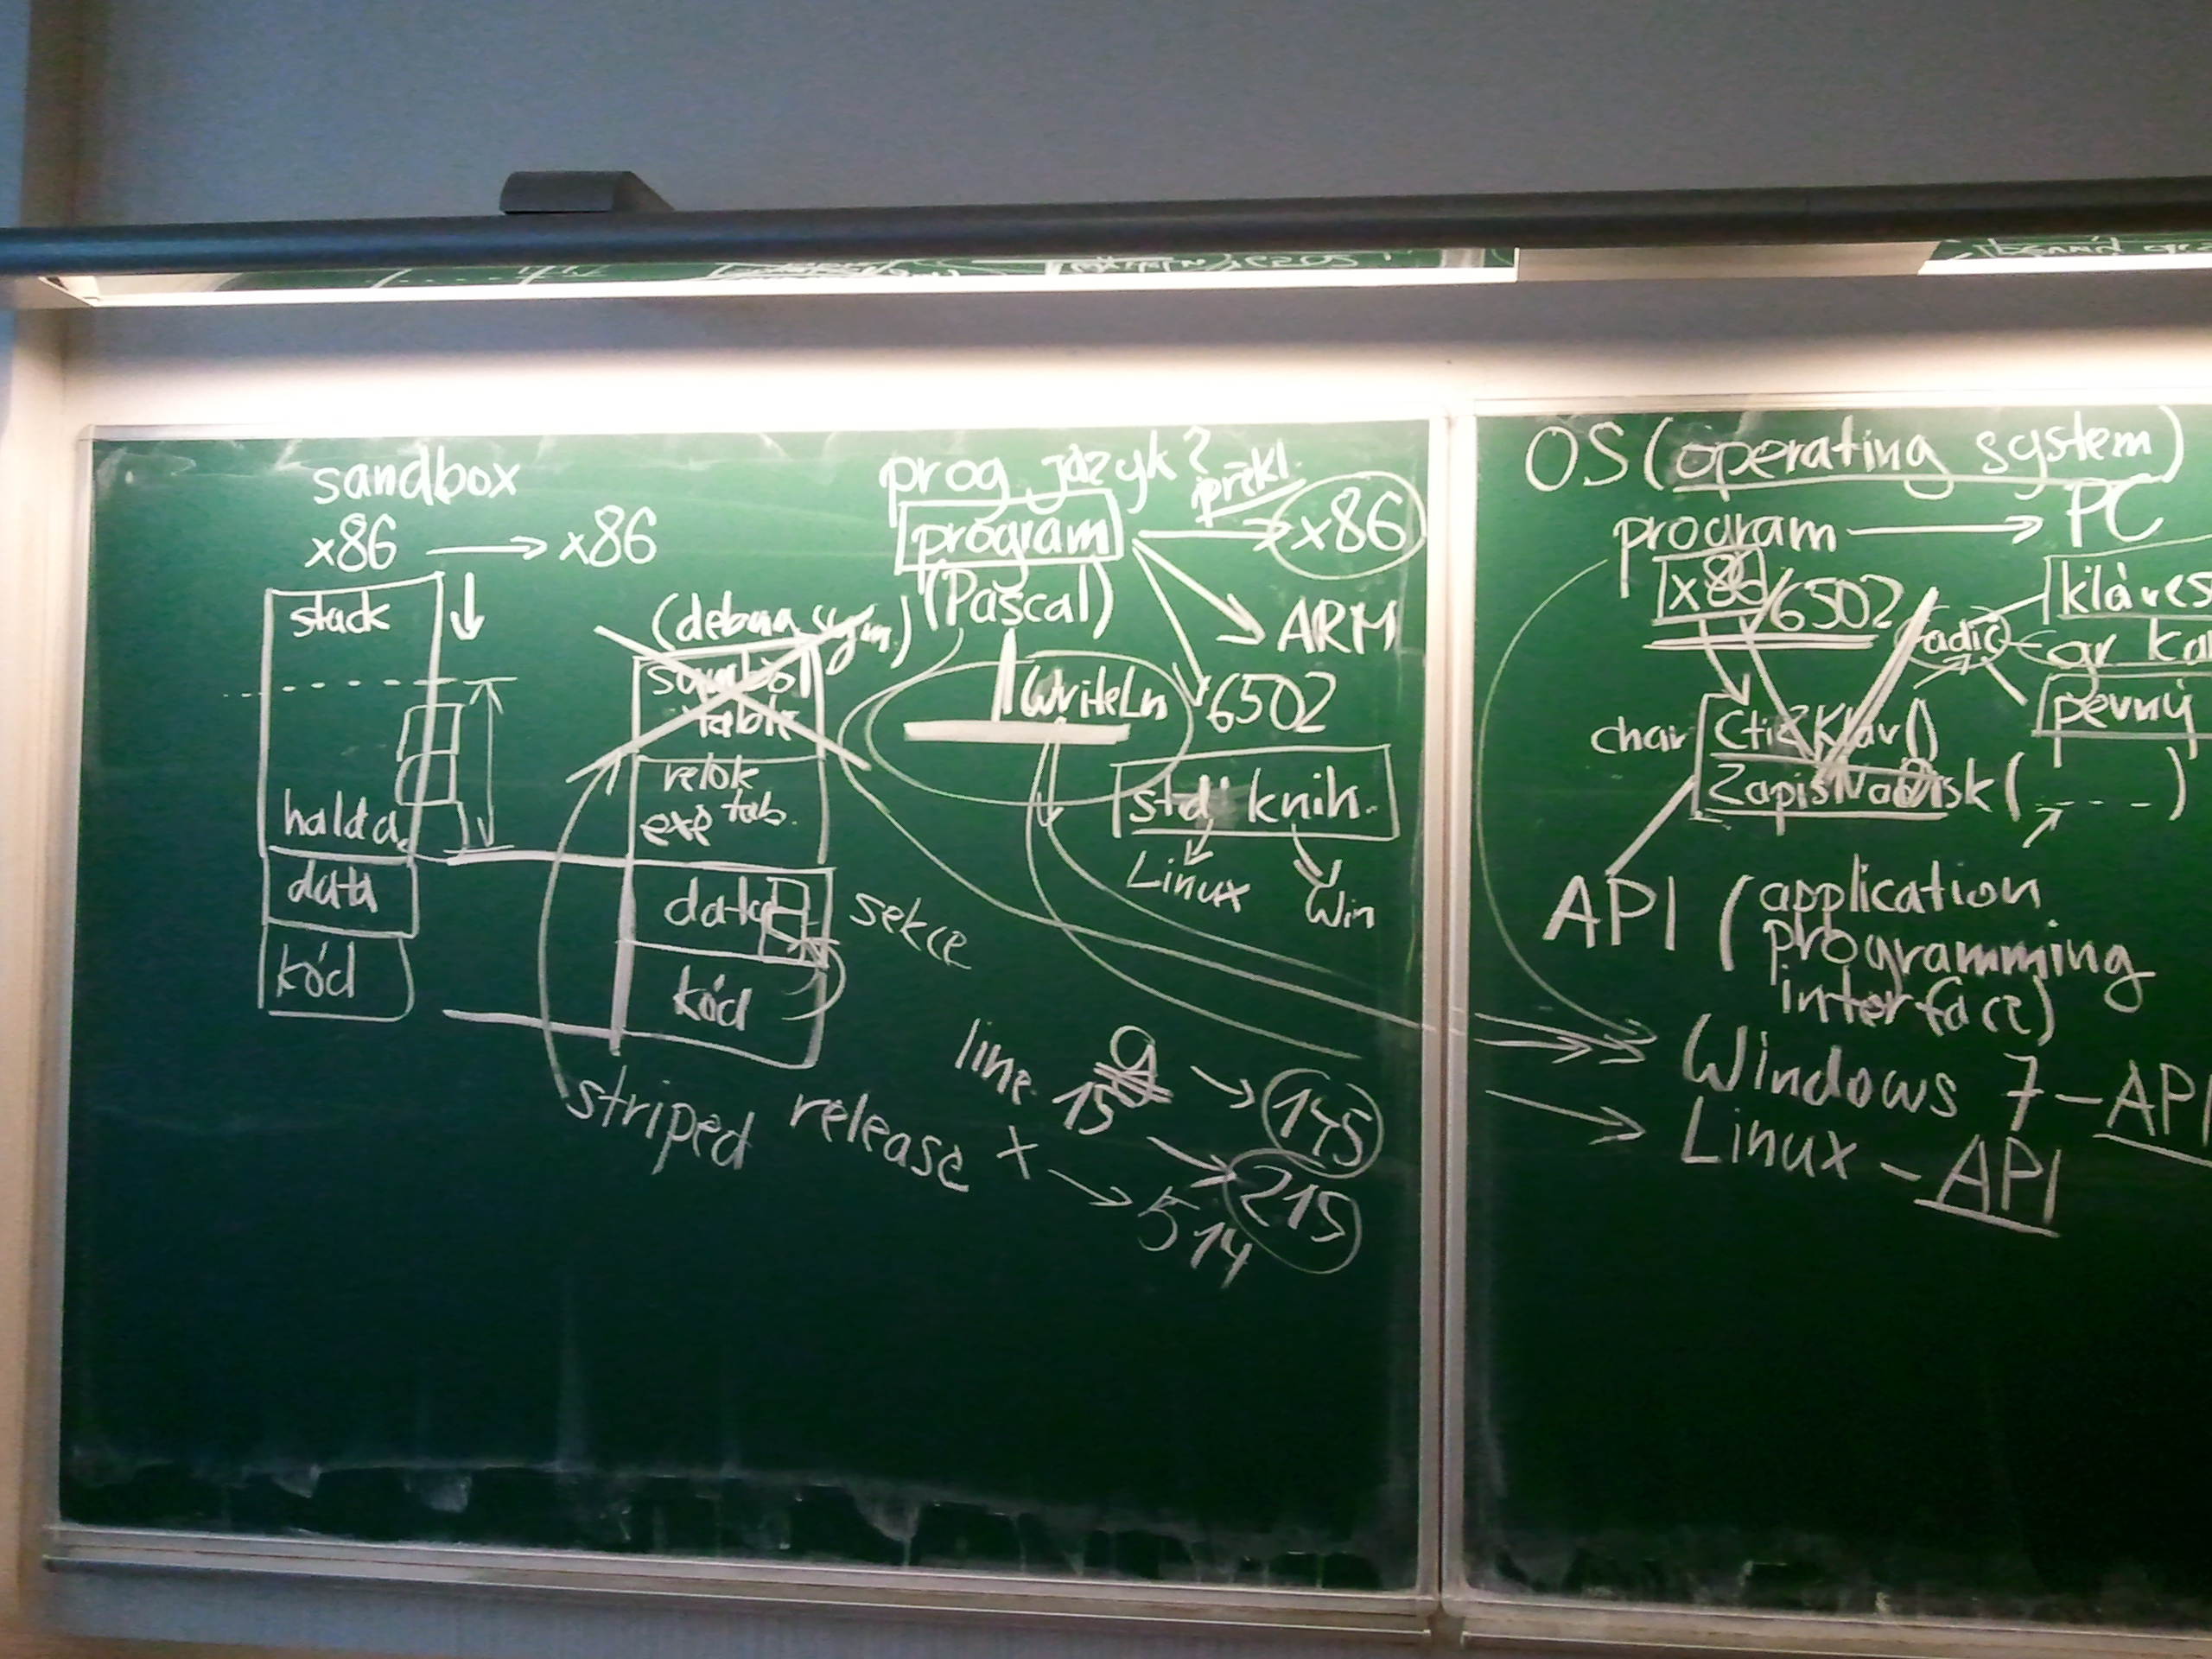 sandbox
x86 → x86
stack
halda
data
kód
(debug sym.)
symbol
table
relok
exe tab.
data
kód
sekce
striped
release x → 514
line 9 → 145
15 → 215
prog jazyk?
překl.
program → x86
(Pascal)
ARM
6502
WriteLn
std knih.
Linux
Win
OS (operating system)
program → PC
x86/6502
řadič
kláves
gr ka
pevný
char
CtiZKláv()
ZapisNaDisk(----)
API (application
programming
interface)
Windows 7 - API
Linux - API